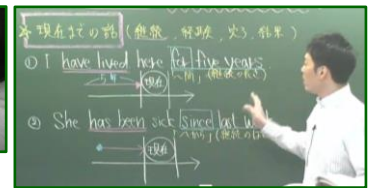 現在までの話 (継続, 経験, 完了, 結果)
① I have lived here for five years.
5年
現在
② She has been sick since last
現在